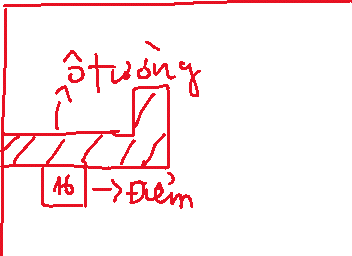 ô tường
16 → Điểm